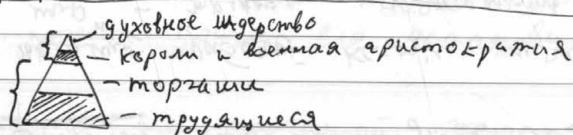 духовное лидерство
– короли и военная аристократия
– торгаши
– трудящиеся